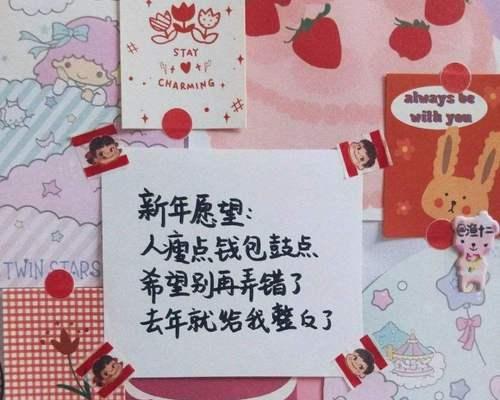 STAY
CHARMING
always be
with you
@渔十二
新年愿望:
人瘦点钱包鼓点
希望别再弄错了
去年就给我整反了
TWIN STARS